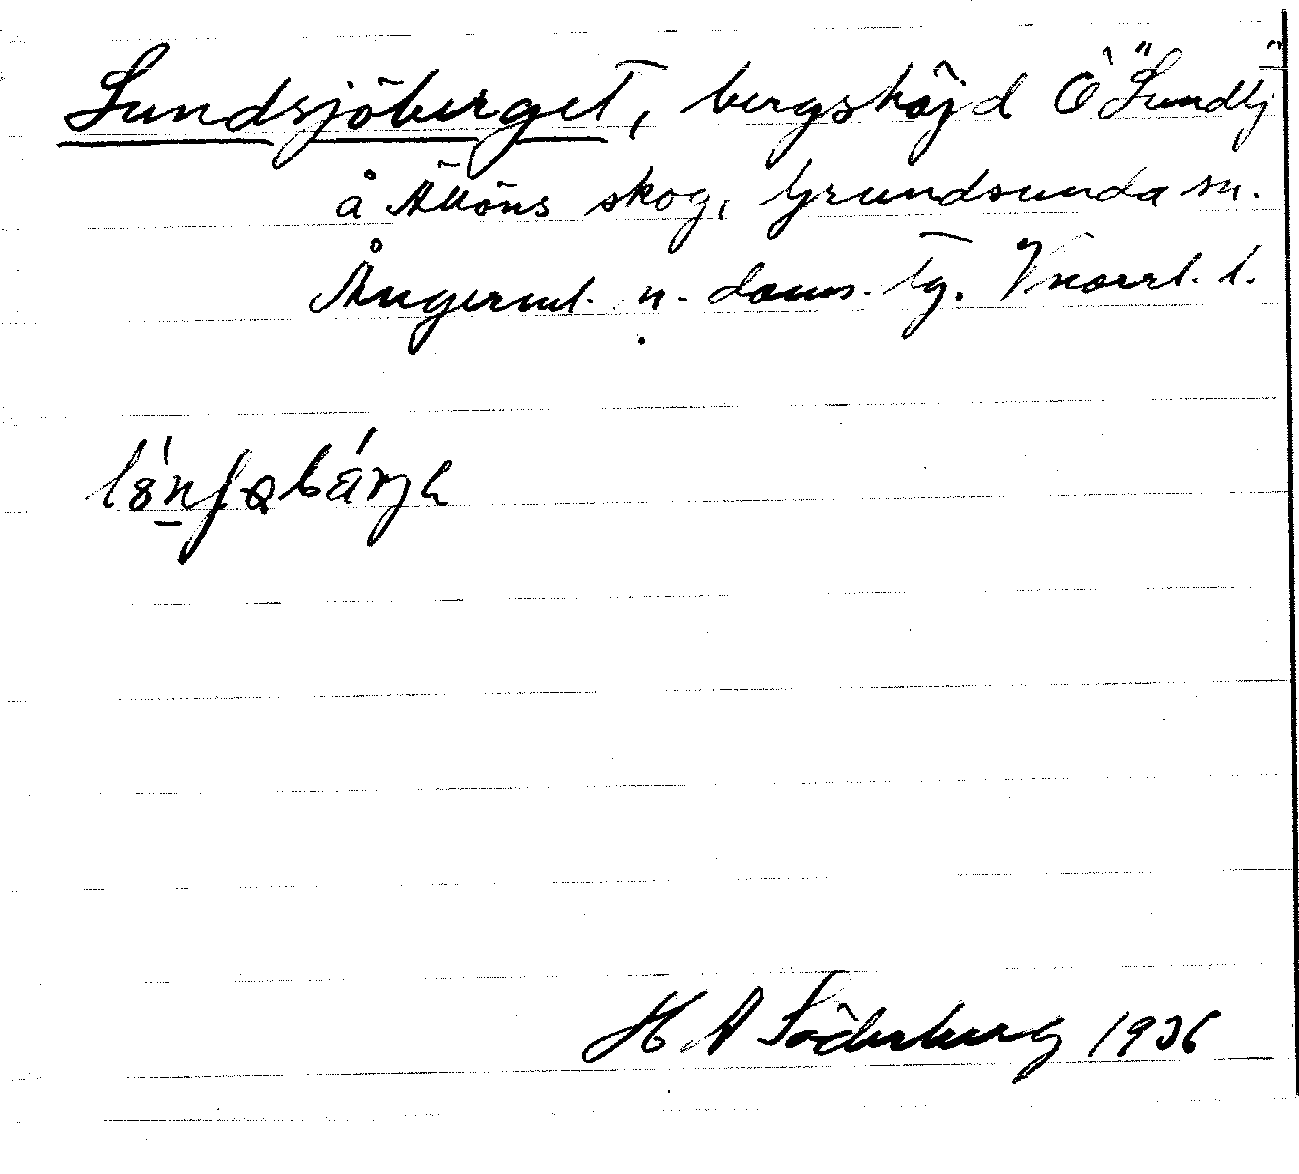 Lundsjöberget, bergshöjd Ö "Lundtj"
å Ällöns skog, Grundsunda sn.
Ångerml. n. doms. tg. Vnorrl. l.
H A Söderberg 1936